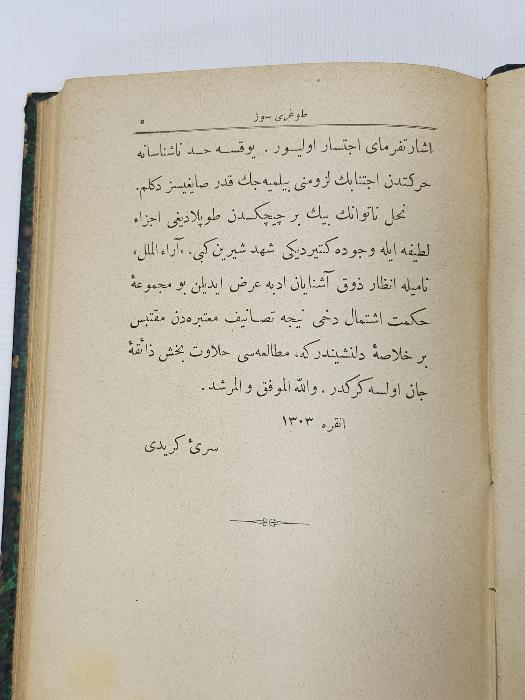 طوغری سوز ٥
اشارتفرمای اجتسار اولیور . یوقسه حد ناشناسانه
حرکتدن اجتنابك لزومنی بیلمیه‌جك قدر صایغیسز دکلم.
نحل ناتوانك بیك بر چیچکدن طوپلادیغی اجزاء
لطیفه ایله وجوده کتیردیکی شهد شیرین کبی، «آراء الملل»
نامیله انظار ذوق آشنایان ادبه عرض ایدیلن بو مجموعهٔ
حکمت اشتمال دخی نیجه تصانیف معتبره‌دن مقتبس
بر خلاصهٔ دلنشیندرکه، مطالعه‌سی حلاوت بخش ذائقهٔ
جان اولسه کرکدر . والله الموفق والمرشد .
انقره ١٣٠٣
سری کریدی